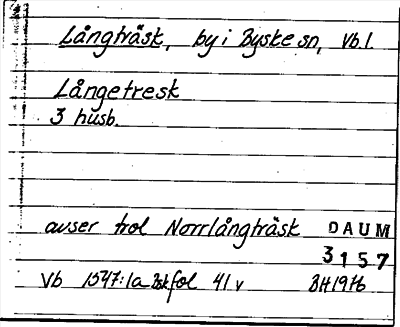 Långträsk, by i Byske sn, Vb l.
Långetresk
3 husb.
avser trol Norrlångträsk DAUM
3157
Vb 1547:1a Bskfol 41 v BH 1976